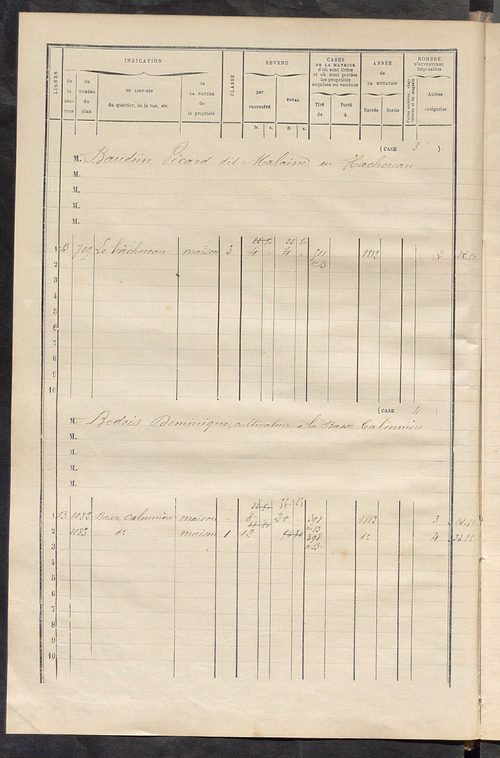 LIGNES
INDICATION
de la SECTION
du NUMÉRO du plan
DU LIEU-DIT du quartier, de la rue, etc.
de LA NATURE de la propriété
CLASSE
REVENU
par
TOTAL
fr. c. fr. c.
CASES DE LA MATRICE d'où sont tirées et où sont portées les propriétés acquises ou vendues
Tiré de
Porté à
ANNÉE de LA MUTATION
Entrée
Sortie
NOMBRE d'ouvertures imposables
Autres catégories
(CASE 3 )
M. Baudoin Picard dit Malaine au Hachereau
M.
M.
M.
M.
1 B 709 Le hâchereau maison 3 4 4 391 1882 2
2 n° 13
3
4
5
6
7
8
9
10
(CASE 4 )
M. Bedois Dominique, cultivateur à la Basse Calonnière
M.
M.
M.
M.
1 B 1082 Basse calonnière maison 391 1882 3
2 1083 d° maison 1 12 398 d° 4
3 n° 13
4
5
6
7
8
9
10